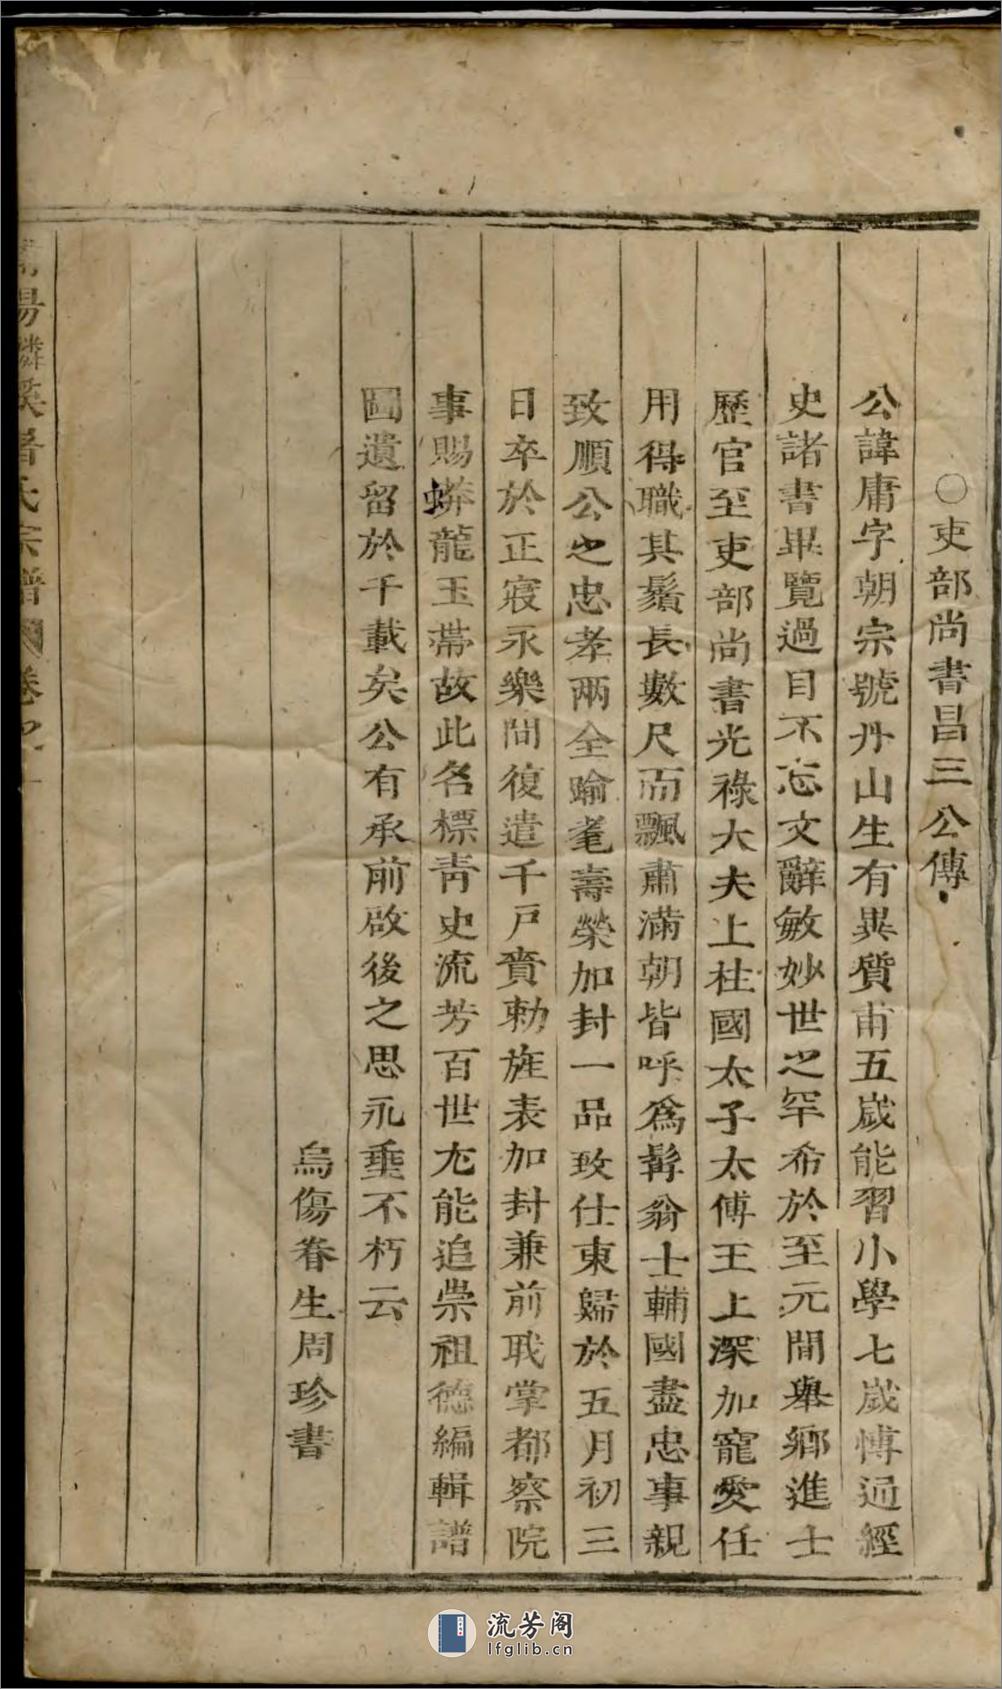 ○吏部尚書昌三公傳
公諱庸字朝宗號丹山生有異質甫五歲能習小學七歲愽通經
史諸書畢覽過目不忘文辭敏妙世之罕希於至元間舉鄉進士
歷官至吏部尚書光祿大夫上柱國太子太傅王上深加寵愛任
用得職其鬚長數尺而飄肅滿朝皆呼為髯翁士輔國盡忠事親
致順公之忠孝兩全踰耄壽榮加封一品致仕東歸於五月初三
日卒於正寢永樂間復遣千戶賫勅旌表加封兼前職掌都察院
事賜蟒龍玉帶故此名標青史流芳百世尤能追崇祖德編輯譜
圖遺留於千載矣公有承前啟後之思永垂不朽云
烏傷眷生周珍書
陽溪呂氏宗譜卷之
流芳阁
lfglib.cn